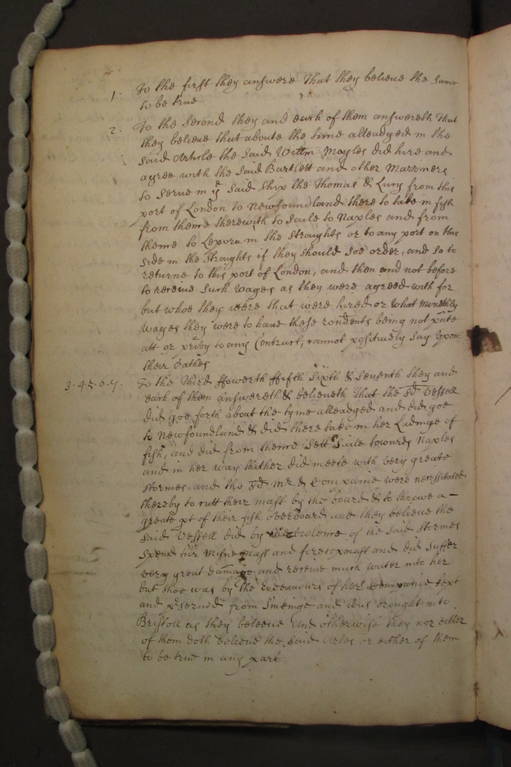 1. To the first they answere That they beleive the same
to be true
2. To the second they and each of them answereth That
they beleive that aboute the time alleadged in the
said Article the said Willm did hire and
agree with the said Bartlett and other Marriners
to serve in ye said Shipp the Thomas & Lucy from this
port of London to Newfoundland there to take in fish
from thence therewith to Saile to Naples and from
thence to in the Straughts or to any port on this
side in the Straughts if they should soe order, and so to
returne to this port of London, and then and not before
to receive such wages as they were agreed with for
but whoe they were that were hired or what Monthly
wages they were to have these rondents being not
att or privy to any Contract, cannot positively say upon
their oathes
3. 4. 5. 6. 7. To the Third ffowerth ffifth Sixth & Seventh they and
each of them answereth & beleiveth that the sd Vessell
did goe forth about the tyme alleadged and did goe
to Newfoundland & did there take in her Ladinge of
fish, and did from thence sett saile towards Naples
and in her way thither did meete with very greate
stormes and the sd Mr & Companie were necessitated
thereby to cutt their mast by the board & to throwe a
greate pt of their fish overboard and they beleive the
said Vessell did by violence of the said stormes
spend her Misne mast and foretopmast and did suffer
very great damage and receive much water into her
but shee was by the endeavours of her Company kept
and pserved from sinkinge and was brought into
Bristoll as they beleeve And otherwise they nor either
of them doth beleive the said Arles or either of them
to be true in any part